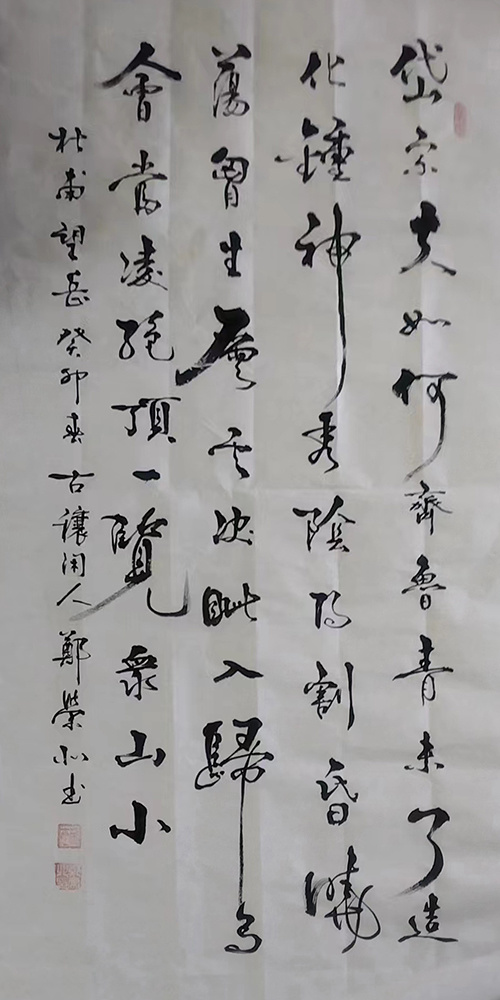 岱宗夫如何齊魯青未了造
化鍾神秀陰陽割昏曉
蕩胸生層雲決眦入歸鳥
會當凌絕頂一覽衆山小
杜甫望岳癸卯春古讓閑人鄭榮書